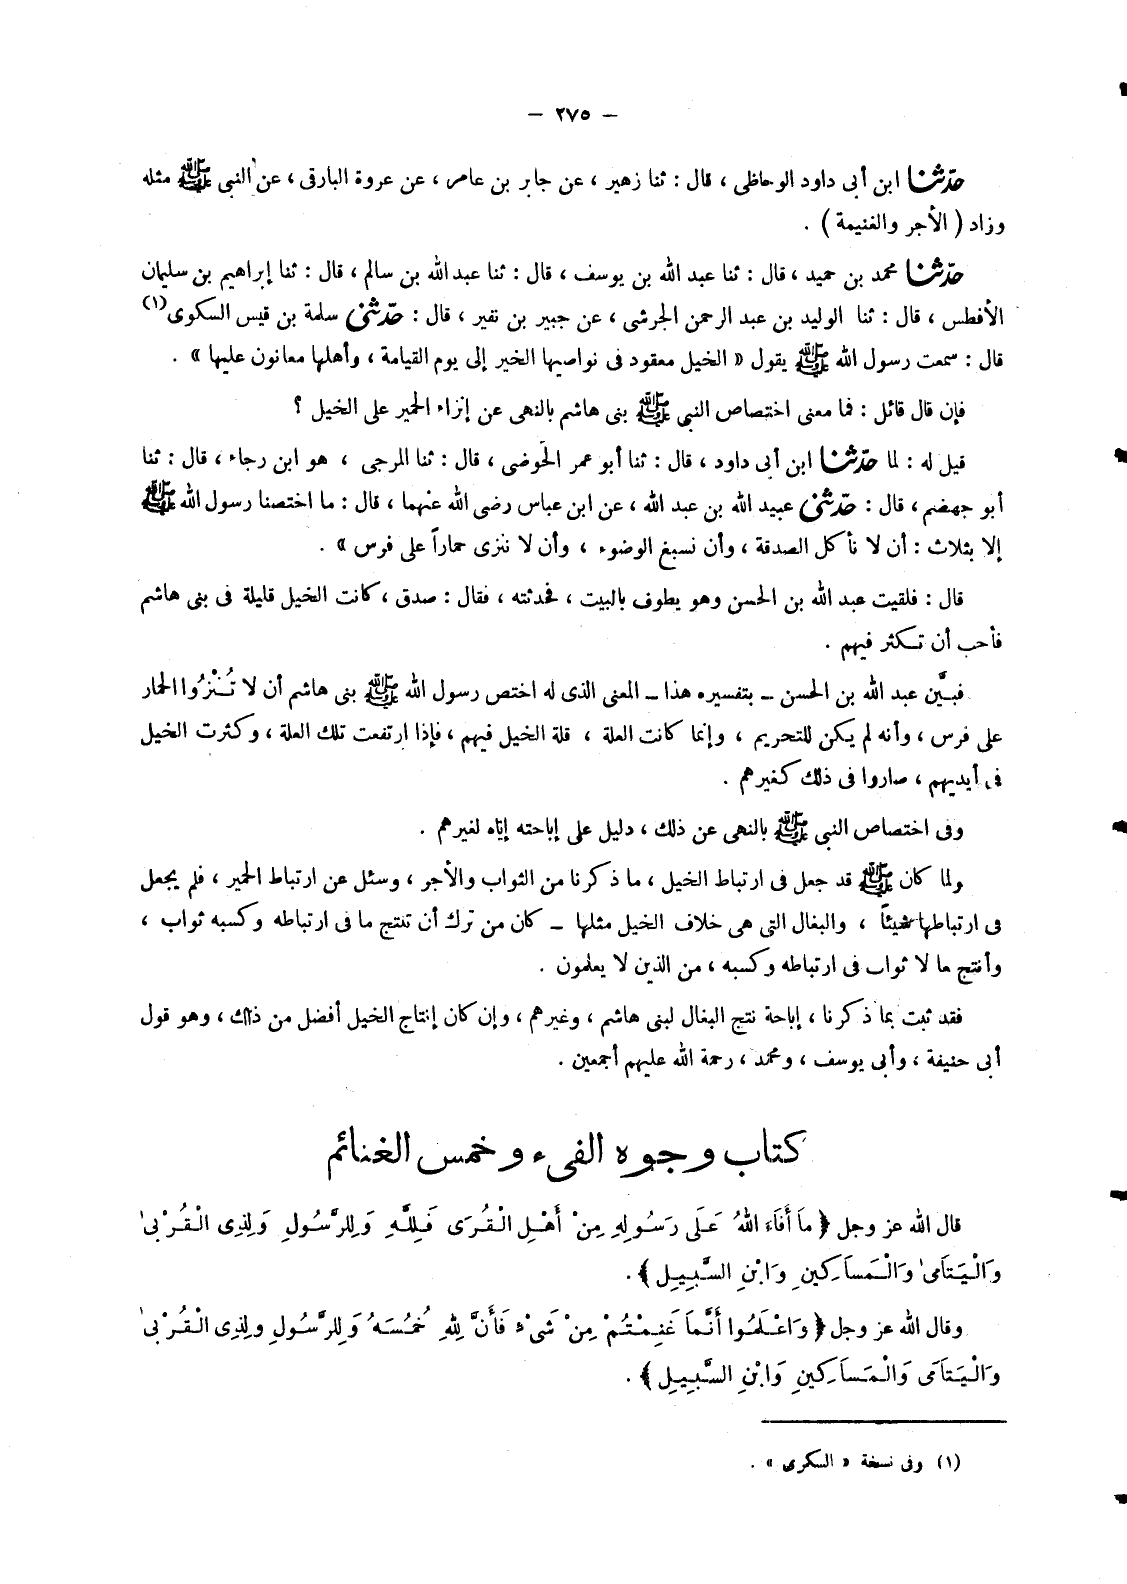 — ٢٧٥ —
حدّثنا ابن أبى داود الوحاظى ، قال : ثنا زهير ، عن جابر بن عامر ، عن عروة البارقى ، عن النبى ﷺ مثله
وزاد ( الأجر والغنيمة ) .
حدّثنا محمد بن حميد ، قال : ثنا عبد الله بن يوسف ، قال : ثنا عبد الله بن سالم ، قال : ثنا إبراهيم بن سليمان
الأفطس ، قال : ثنا الوليد بن عبد الرحمن الجرشى ، عن جبير بن نفير ، قال : حدّثنى سلمة بن قيس السكوى(١)
قال : سمعت رسول الله ﷺ يقول « الخيل معقود فى نواصيها الخير إلى يوم القيامة ، وأهلها معانون عليها » .
فإن قال قائل : فما معنى اختصاص النبى ﷺ بنى هاشم بالنهى عن إنزاء الحمير على الخيل ؟
قيل له : لما حدّثنا ابن أبى داود ، قال : ثنا أبو عمر الحَوضى ، قال : ثنا المرجى ، هو ابن رجاء ، قال : ثنا
أبو جهضم ، قال : حدّثنى عبيد الله بن عبد الله ، عن ابن عباس رضى الله عنهما ، قال : ما اختصنا رسول الله ﷺ
إلا بثلاث : أن لا نأكل الصدقة ، وأن نسبغ الوضوء ، وأن لا ننزى حماراً على فرس » .
قال : فلقيت عبد الله بن الحسن وهو يطوف بالبيت ، فحدثته ، فقال : صدق ، كانت الخيل قليلة فى بنى هاشم
فأحب أن تكثر فيهم .
فبيَّن عبد الله بن الحسن ــ بتفسيره هذا ــ المعنى الذى له اختص رسول الله ﷺ بنى هاشم أن لا تُنْزُوا الحمار
على فرس ، وأنه لم يكن للتحريم ، وإنما كانت العلة ، قلة الخيل فيهم ، فإذا ارتفعت تلك العلة ، وكثرت الخيل
فى أيديهم ، صاروا فى ذلك كغيرهم .
وفى اختصاص النبى ﷺ بالنهى عن ذلك ، دليل على إباحته إيّاه لغيرهم .
ولما كان ﷺ قد جعل فى ارتباط الخيل ، ما ذكرنا من الثواب والأجر ، وسئل عن ارتباط الحمير ، فلم يجعل
فى ارتباطها شيئاً ، والبغال التى هى خلاف الخيل مثلها ــ كان من ترك أن تنتج ما فى ارتباطه وكسبه ثواب ،
وأنتج ما لا ثواب فى ارتباطه وكسبه ، من الذين لا يعلمون .
فقد ثبت بما ذكرنا ، إباحة نتج البغال لبنى هاشم ، وغيرهم ، وإن كان إنتاج الخيل أفضل من ذلك ، وهو قول
أبى حنيفة ، وأبى يوسف ، ومحمد ، رحمة الله عليهم أجمعين .
كتاب وجوه الفىء وخمس الغنائم
قال الله عز وجل ﴿ مَا أَفَاءَ اللهُ عَلَى رَسُولِهِ مِنْ أَهْلِ الْقُرَى فَلِلَّهِ وَلِلرَّسُولِ وَلِذِى الْقُرْبىٰ
وَالْيَتَامىٰ وَالْمَسَاكِينِ وَابْنِ السَّبِيلِ ﴾ .
وقال الله عز وجل ﴿ وَاعْلَمُوا أَنَّمَا غَنِمْتُمْ مِنْ شَىْءٍ فَأَنَّ لِلهِ خُمُسَهُ وَلِلرَّسُولِ ولِذِى الْقُرْبىٰ
وَالْيَتَامَى وَالْمَسَاكِينِ وَابْنِ السَّبِيلِ ﴾ .
(١) وفى نسخة « السكرى » .